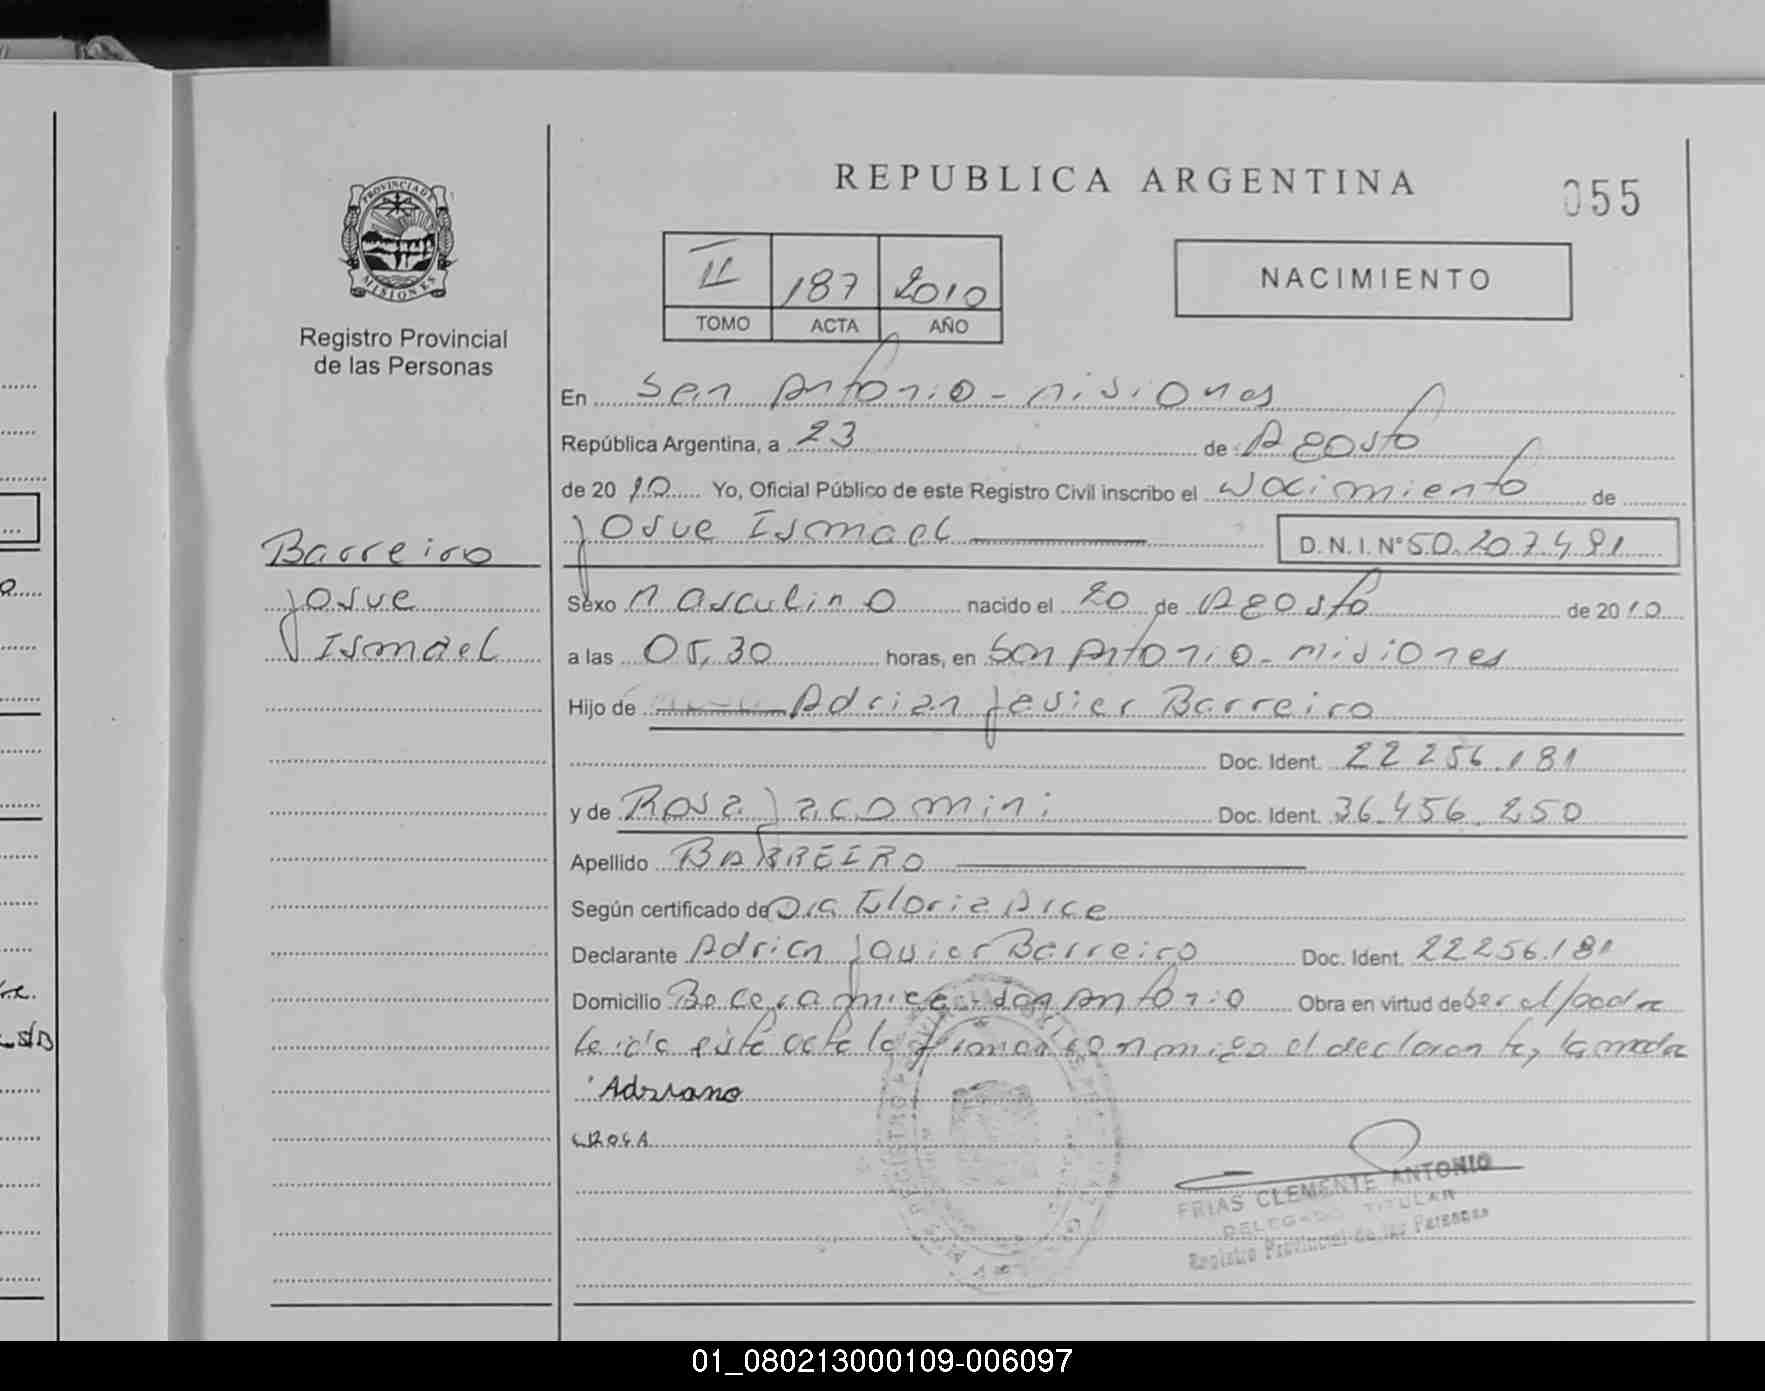 REPUBLICA ARGENTINA
055
PROVINCIA DE
MISIONES
Registro Provincial
de las Personas
II 187 2010
TOMO ACTA AÑO
NACIMIENTO
En San Antonio - Misiones
República Argentina, a 23 de Agosto
de 20 10 Yo, Oficial Público de este Registro Civil inscribo el Nacimiento de
Josue Ismael D.N.I. Nº 50.207.491
Barreiro
Josue
Ismael
Sexo Masculino nacido el 20 de Agosto de 2010
a las 05,30 horas, en San Antonio - Misiones
Hijo de Adrian Javier Barreiro
Doc. Ident. 22 256.181
y de Rosa Jacomini Doc. Ident. 36.456.250
Apellido BARREIRO
Según certificado de Dra Gloria Arce
Declarante Adrian Javier Barreiro Doc. Ident. 22256.181
Domicilio San Antonio Obra en virtud de ser el padre
leida este acta la firman conmigo el declarante, la madre
Adriano
FRIAS CLEMENTE ANTONIO
DELEGADO TITULAR
Registro Provincial de las Personas
01_080213000109-006097